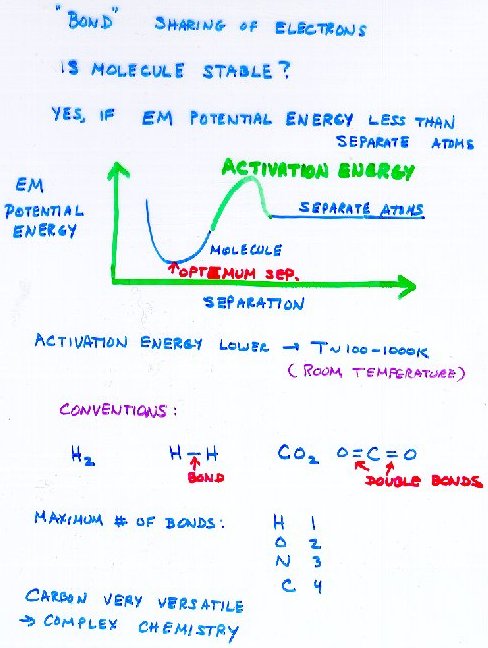 "BOND" SHARING OF ELECTRONS
IS MOLECULE STABLE?
YES, IF EM POTENTIAL ENERGY LESS THAN
SEPARATE ATOMS
ACTIVATION ENERGY
EM
POTENTIAL
ENERGY
SEPARATE ATOMS
MOLECULE
OPTIMUM SEP.
SEPARATION
ACTIVATION ENERGY LOWER → T~100-1000K
(ROOM TEMPERATURE)
CONVENTIONS:
H₂ H-H CO₂ O=C=O
BOND DOUBLE BONDS
MAXIMUM # OF BONDS: H 1
O 2
N 3
C 4
CARBON VERY VERSATILE
→ COMPLEX CHEMISTRY